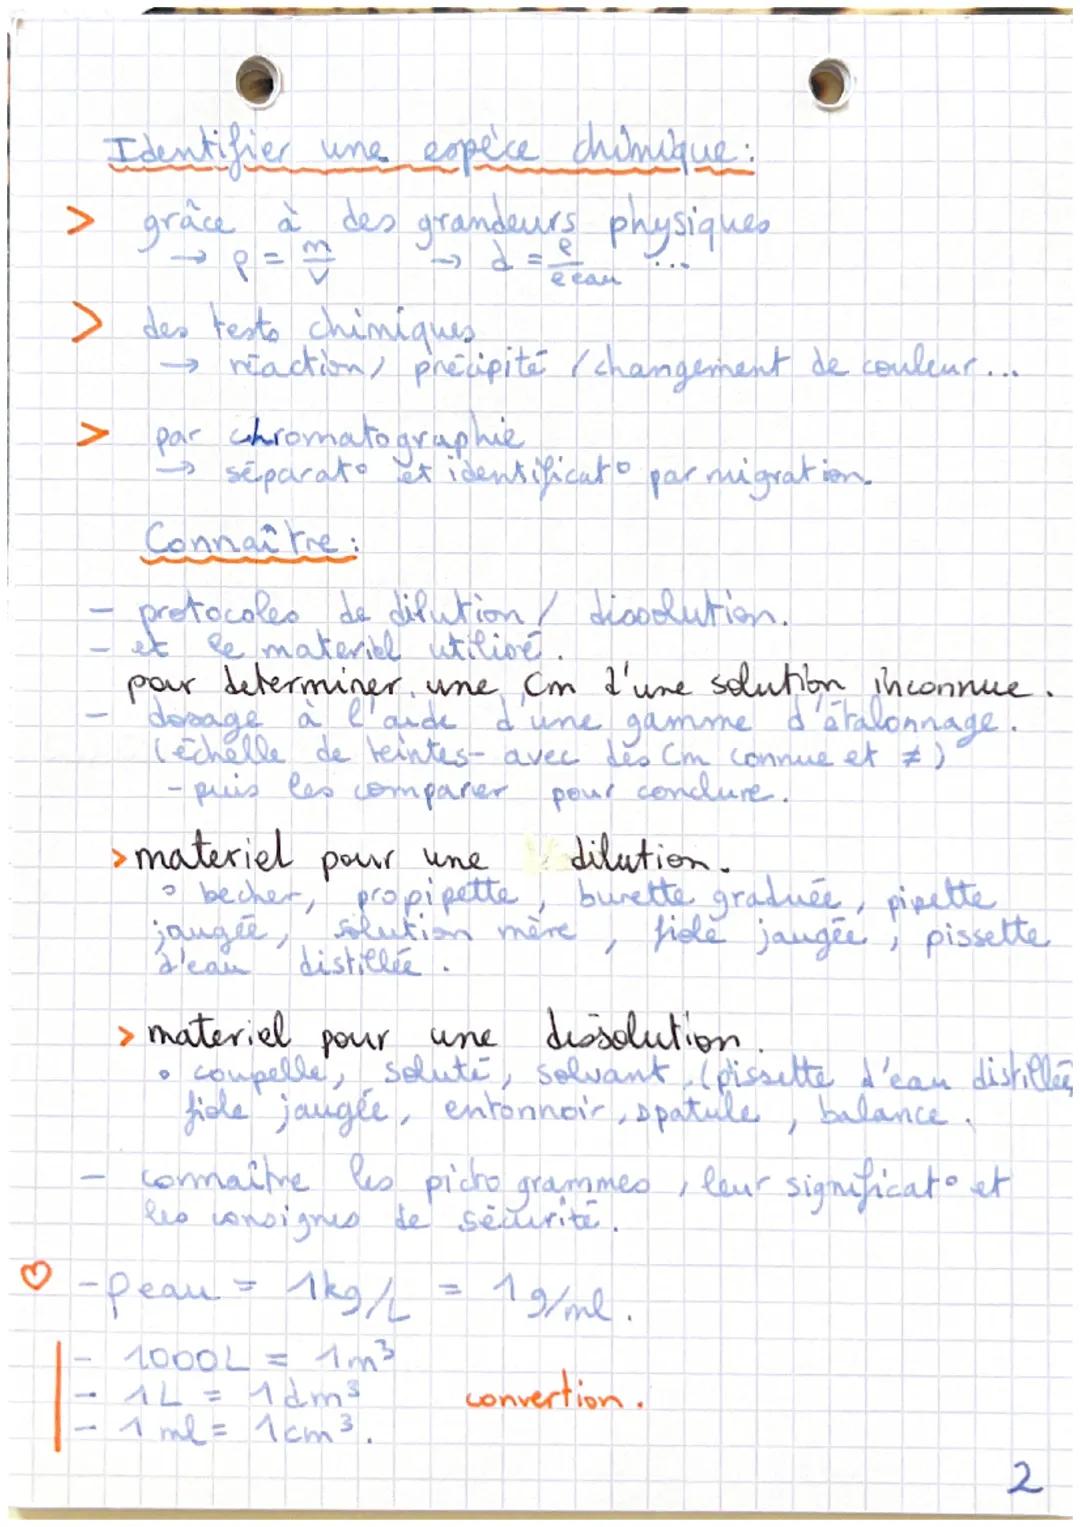 Identifier une espèce chimique :
> grâce à des grandeurs physiques
→ ρ = m/V → d = ρ/ρeau ...
> des tests chimiques
→ réaction / précipité / changement de couleur ...
> par chromatographie
→ séparat° et identificat° par migration.
Connaître :
- protocoles de dilution / dissolution.
- et le materiel utilisé.
pour determiner une Cm d'une solution inconnue.
- dosage à l'aide d'une gamme d'étalonnage.
(échelle de teintes - avec des Cm connue et ≠)
- puis les comparer pour conclure.
> materiel pour une dilution.
° becher, propipette, burette graduée, pipette
jaugée, solution mère, fiole jaugée, pissette
d'eau distillée.
> materiel pour une dissolution.
• coupelle, soluté, solvant (pissette d'eau distillée,
fiole jaugée, entonnoir, spatule, balance.
- connaître les pictogrammes, leur significat° et
les consignes de sécurité.
♡ - ρeau = 1kg/L = 1g/ml.
- 1000L = 1m³
- 1L = 1dm³ convertion.
- 1ml = 1cm³.
2